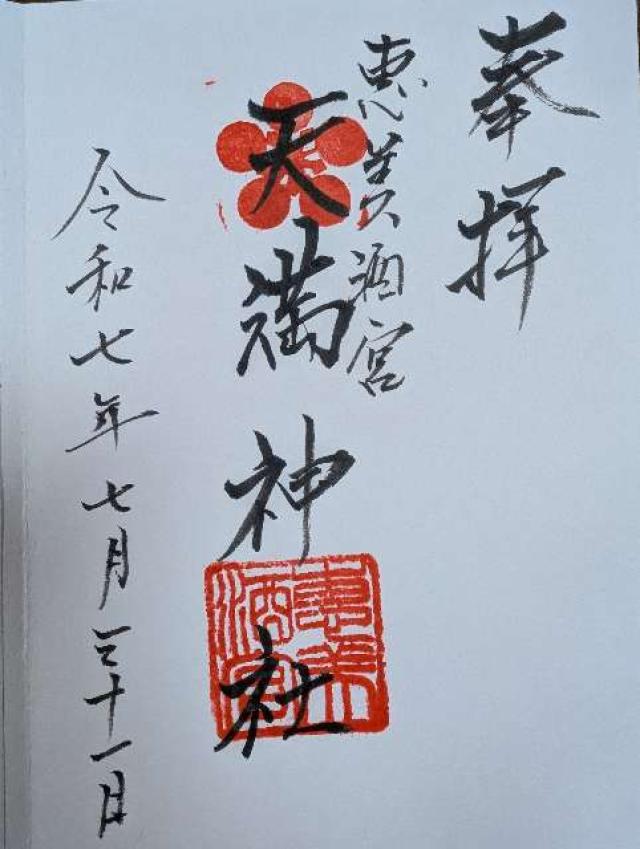 奉拝
恵美酒宮
天満神社
令和七年七月三十一日
惠美
酒宮